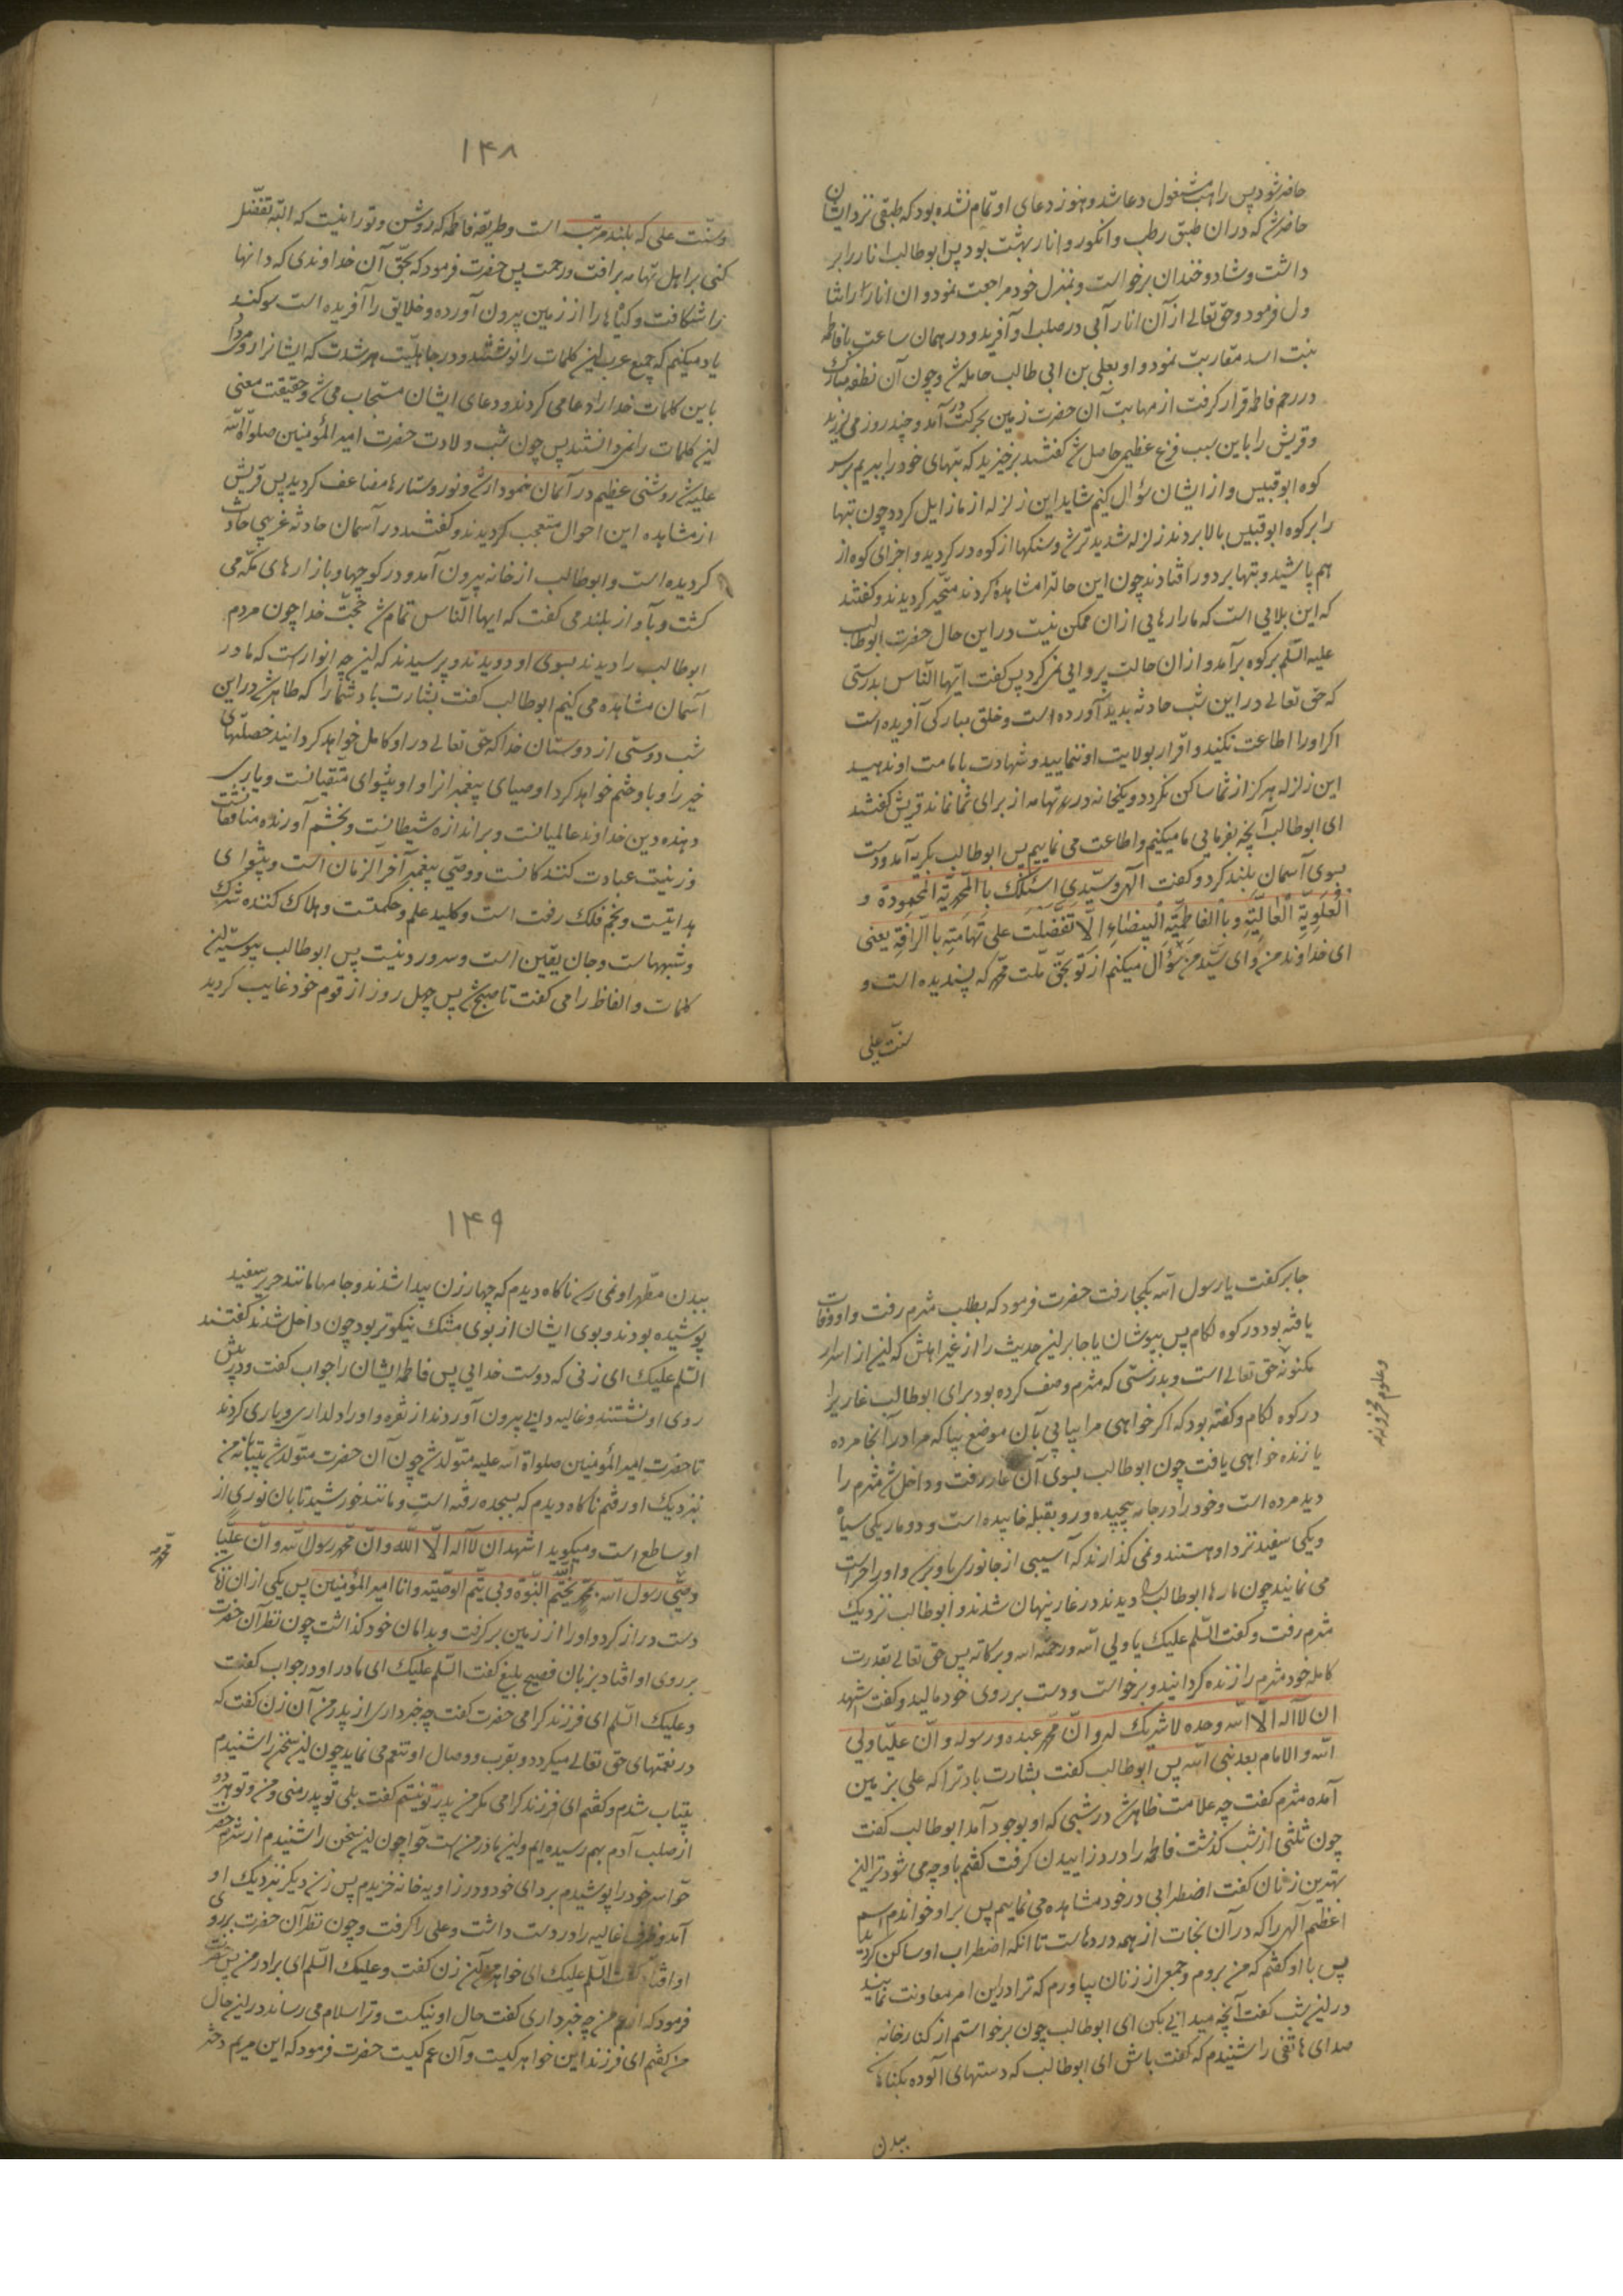 حاضر شود پس راهب مشغول دعا شد و هنوز دعای او تمام نشده بود که طبقی نزد ایشان
حاضر شد که در ان طبق رطب و انکور و انار بهشت بود پس ابوطالب انار را بر
داشت و شاد و خندان برخواست و بمنزل خود مراجعت نمود و ان انار را
ول فرمود و حق تعالی از آن انار آبی در صلب او آفرید و در همان ساعت با فاطمه
بنت اسد مقاربت نمود و او بعلی بن ابی طالب حامله شد و چون آن نطفه مبارک
در رحم فاطمه قرار کرفت از مهابت آن حضرت زمین بحرکت در آمد و چند روز می لرزید
و قریش را باین سبب فزع عظیمی حاصل شد کفتند برخیزید که بتهای خود را ببریم بر سر
کوه ابوقبیس و از ایشان سؤال کنیم شاید این زلزله از ما زایل کردد چون بتها
را بر کوه ابوقبیس بالا بردند زلزله شدیدتر شد و سنکها از کوه در کردید و اجزای کوه از
هم پاشید و بتها بر دور افتادند چون این حالترا مشاهده کردند متحیر کردیدند و کفتند
که این بلایی است که ما را رهایی از ان ممکن نیست در این حال حضرت ابوطالب
علیه السلم بر کوه برآمد و از ان حالت پروایی نمی کرد پس کفت ایها الناس بدرستی
که حق تعالی در این شب حادثه بدید آورده است و خلق مبارکی آفریده است
اکر او را اطاعت نکنید و اقرار بولایت او ننمایید و شهادت بامامت او ندهید
این زلزله هرکز از شما ساکن نکردد و یکخانه در تهامه از برای شما نماند قریش کفتند
ای ابوطالب آنچه بفرمایی ما میکنیم و اطاعت می نماییم پس ابوطالب بکریه آمد و دست
بسوی آسمان بلند کرد و کفت الهی و سیدی اسئلک بالمحمدیة المحمودة و
العلویة العالیة و بالفاطمیة البیضاء الا تفضلت علی تهامة بالرأفة یعنی
ای خداوند من و ای سید من سؤال میکنم از تو بحق ملت محمد که پسندیده است و
سنت علی
۱۴۸
و سنت علی که بلند مرتبه است و طریقه فاطمه که روشن و نورانیت که البته تفضل
کنی بر اهل تهامه برافت و رحمت پس حضرت فرمود که بحق آن خداوندی که دانها
را شکافت و کیاهها را از زمین بیرون آورده و خلایق را آفریده است سوکند
یاد میکنم که جمیع عرب این کلمات را نوشتند و در جاهلیت هر شدت که ایشانرا رو میداد
باین کلمات خدا را دعا می کردند و دعای ایشان مستجاب می شد و حقیقت معنی
این کلمات را نمی دانستند پس چون شب ولادت حضرت امیر المؤمنین صلواة الله
علیه شد روشنی عظیم در آسمان نمودار شد و نور ستارها مضاعف کردید پس قریش
از مشاهده این احوال متعجب کردیدند و کفتند در آسمان حادثه غریبی حادث
کردیده است و ابوطالب از خانه بیرون آمد و در کوچها و بازارهای مکه می
کشت و بآواز بلند می کفت که ایها الناس تمام شد حجت خدا چون مردم
ابوطالب را دیدند بسوی او دویدند و پرسیدند که این چه انوار است که ما در
آسمان مشاهده می کنیم ابوطالب کفت بشارت باد شما را که ظاهر شد در این
شب دوستی از دوستان خدا که حق تعالی در او کامل خواهد کردانید خصلتهای
خیر را و باو ختم خواهد کرد اوصیای پیغمبرانرا و او پیشوای متقیانست و یاری
دهنده دین خداوند عالمیانست و براندازه شیطانست و بخشم آورنده منافقانست
و زینت عبادت کنندکانست و وصی پیغمبر آخر الزمان است و پیشوای
هدایتست و نجم فلک رفعت است و کلید علم و حکمتست و هلاک کننده شرک
و شبههاست و جان یقین است و سرور دینست پس ابوطالب پیوسته این
کلمات و الفاظ را می کفت تا صبح شد پس چهل روز از قوم خود غایب کردید
جابر کفت یا رسول الله بکجا رفت حضرت فرمود که بطلب مثرم رفت و او وفات
یافته بود در کوه لکام پس بپوشان یا جابر این حدیث را از غیر اهلش که این از اسرار
مکنونه حق تعالی است و بدرستی که مثرم وصف کرده بود برای ابوطالب غاریرا
وعلوم مخزونه
در کوه لکام و کفته بود که اکر خواهی مرا بیابی بآن موضع بیا که مرا در آنجا مرده
یا زنده خواهی یافت چون ابوطالب بسوی آن غار رفت و داخل شد مثرم را
دید مرده است و خود را در جامه پیچیده و رو بقبله خابیده است و دو مار یکی سیاه
و یکی سفید نزد او هستند و نمی کذارند که آسیبی از جانوری باو برسد و او را حراست
می نمایند چون مارها ابوطالب را دیدند در غار پنهان شدند و ابوطالب نزدیک
مثرم رفت و کفت السلم علیک یا ولی الله و رحمة الله و برکاته پس حق تعالی بقدرت
کامله خود مثرم را زنده کردانید و برخواست و دست بر روی خود مالید و کفت اشهد
ان لا اله الا الله وحده لا شریک له و ان محمد عبده و رسوله و ان علیا ولی
الله و الامام بعد نبی الله پس ابوطالب کفت بشارت باد ترا که علی بزمین
آمده مثرم کفت چه علامت ظاهر شد در شبی که او بوجود آمد ابوطالب کفت
چون ثلثی از شب کذشت فاطمه را درد زاییدن کرفت کفتم باو چه می شود ترا این
بهترین زنان کفت اضطرابی در خود مشاهده می نماییم پس بر او خواندم اسم
اعظم الهی را که در آن نجات از همه دردهاست تا انکه اضطراب او ساکن کردید
پس با او کفتم که من بروم و جمعی از زنان بیاورم که ترا در این امر معاونت نمایند
در این شب کفت آنچه میدانی بکن ای ابوطالب چون برخواستم از کنار خانه
صدای هاتفی را شنیدم که کفت باش ای ابوطالب که دستهای آلوده بکناهان
ببدن
۱۴۹
ببدن مطهر او نمی رسد ناکاه دیدم که چهار زن پیدا شدند و جامها مانند حریر سفید
پوشیده بودند و بوی ایشان از بوی مشک نیکوتر بود چون داخل شدند کفتند
السلم علیک ای زنی که دوست خدایی پس فاطمه ایشان را جواب کفت و در پیش
روی او نشستند و غالیه دانی بیرون آوردند از نقره و او را دلداری و یاری کردند
تا حضرت امیر المؤمنین صلواة الله علیه متولد شد چون آن حضرت متولد شد بیتابانه من
بنزدیک او رفتم ناکاه دیدم که بسجده رفته است و مانند خورشید تابان نوری از
او ساطع است و میکوید اشهد ان لا اله الا الله و ان محمد رسول الله و ان علیا
وصی رسول الله بمحمد یختم الله النبوة و بی یتم الوصیته و انا امیر المؤمنین پس یکی از ان زنان
محمد
دست دراز کرد و او را از زمین برکرفت و بدامان خود کذاشت چون نظر آن حضرت
بر روی او افتاد بزبان فصیح بلیغ کفت السلم علیک ای مادر او در جواب کفت
و علیک السلم ای فرزند کرامی حضرت کفت چه خبر داری از پدر من آن زن کفت که
در نعمتهای حق تعالی میکردد و بقرب و وصال او تنعم می نماید چون این سخن را شنیدم
بیتاب شدم و کفتم ای فرزند کرامی مکر من پدر تو نیستم کفت بلی تو پدر منی و من و تو هر دو
از صلب آدم بهم رسیده ایم و این مادر من است حوا چون این سخن را شنیدم از شرم حضرت
حوا سر خود را پوشیدم بردای خود و در زاویه خانه خزیدم پس زنی دیکر بنزدیک او
آمد و ظرف غالیه را در دست داشت و علی را کرفت و چون نظر آن حضرت بر روی
او افتاد کفت السلم علیک ای خواهر من آن زن کفت و علیک السلم ای برادر من پس حضرت
فرمود که از عم من چه خبر داری کفت حال او نیکست و ترا اسلام می رساند در این حال
من کفتم ای فرزند این خواهر کیست و آن عم کیست حضرت فرمود که این مریم دختر